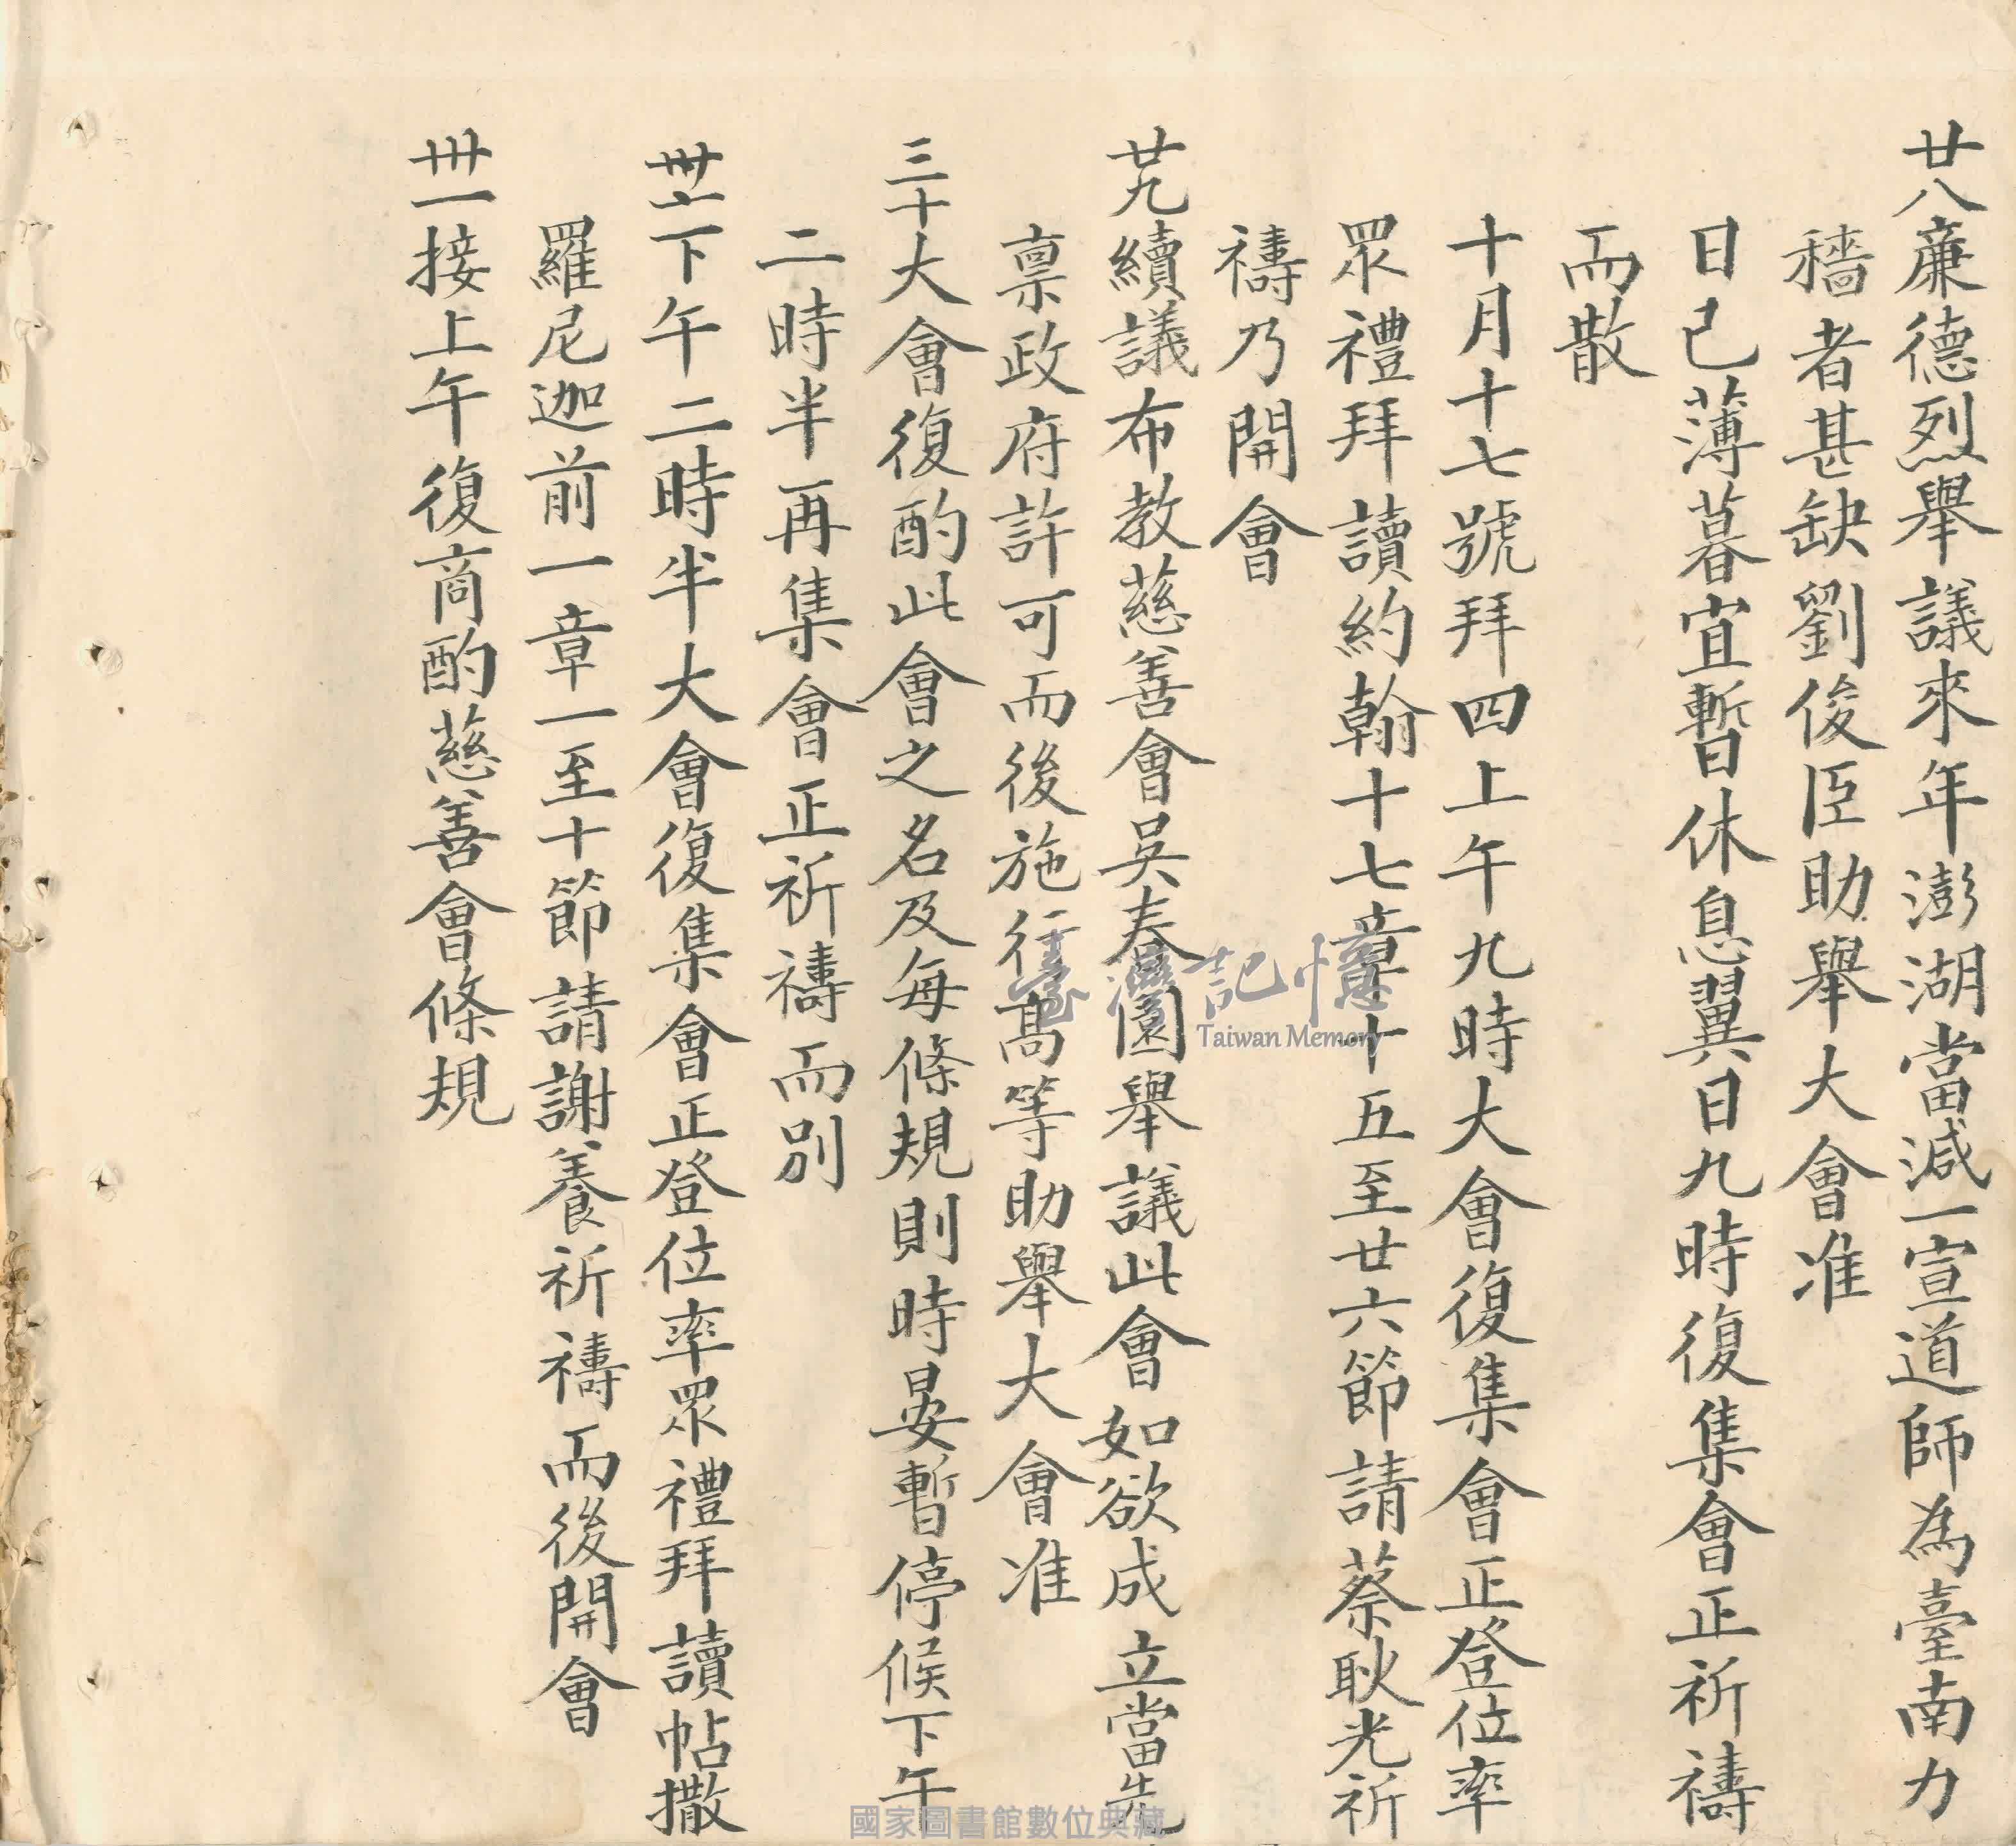 廿八廉德烈舉議來年澎湖當減一宣道師為臺南力
穡者甚缺劉俊臣助舉大會准
日已薄暮宜暫休息翼日九時復集會正祈禱
而散
十月十七號拜四上午九時大會復集會正登位率
眾禮拜讀約翰十七章十五至廿六節請蔡耿光祈
禱乃開會
廿九續議布教慈善會吳春園舉議此會如欲成立當先
禀政府許可而後施行高等助舉大會准
三十大會復酌此會之名及每條規則時晏暫停候下午
二時半再集會正祈禱而別
下午二時半大會復集會正登位率眾禮拜讀帖撒
羅尼迦前一章一至十節請謝養祈禱而後開會
卅一接上午復商酌慈善會條規
臺灣記憶
Taiwan Memory
國家圖書館數位典藏